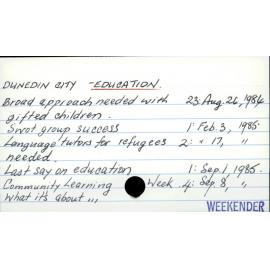 DUNEDIN CITY - EDUCATION.
Broad approach needed with 23: Aug. 26, 1984
gifted children.
Swot group success 1: Feb. 3, 1985
Language tutors for refugees 2: " 17, "
needed.
Last say on education 1: Sep. 1, 1985.
Community Learning Week 4: Sep. 8, "
What it's about ,,,
WEEKENDER